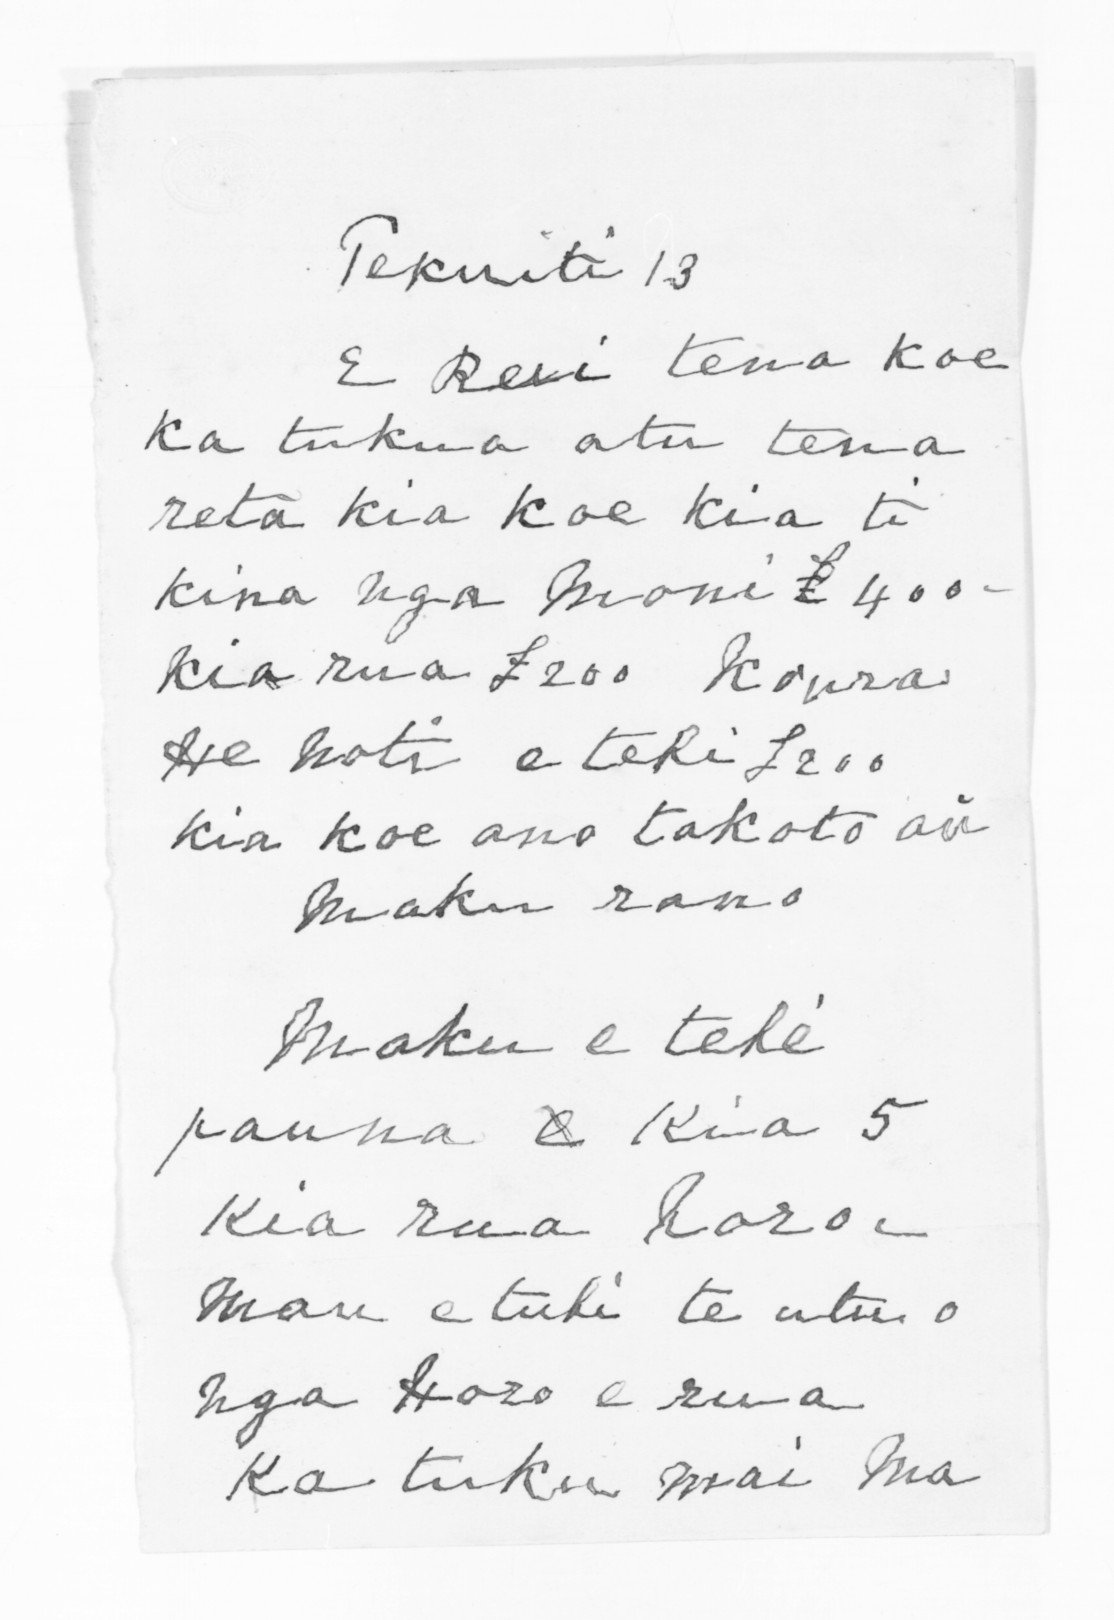 Tekuiti 13
E Revi tena koe
ka tukua atu tena
reta kia koe kia ti
kina nga Moni £400-
kia rua £200 Koura
He Noti e tehi £200
kia koe ano takoto ai
Maku rano
Maku e tehi
pauna kia 5
kia rua horo
Mau e tuhi te utu o
nga Horo e rua
Ka tuku mai Ma